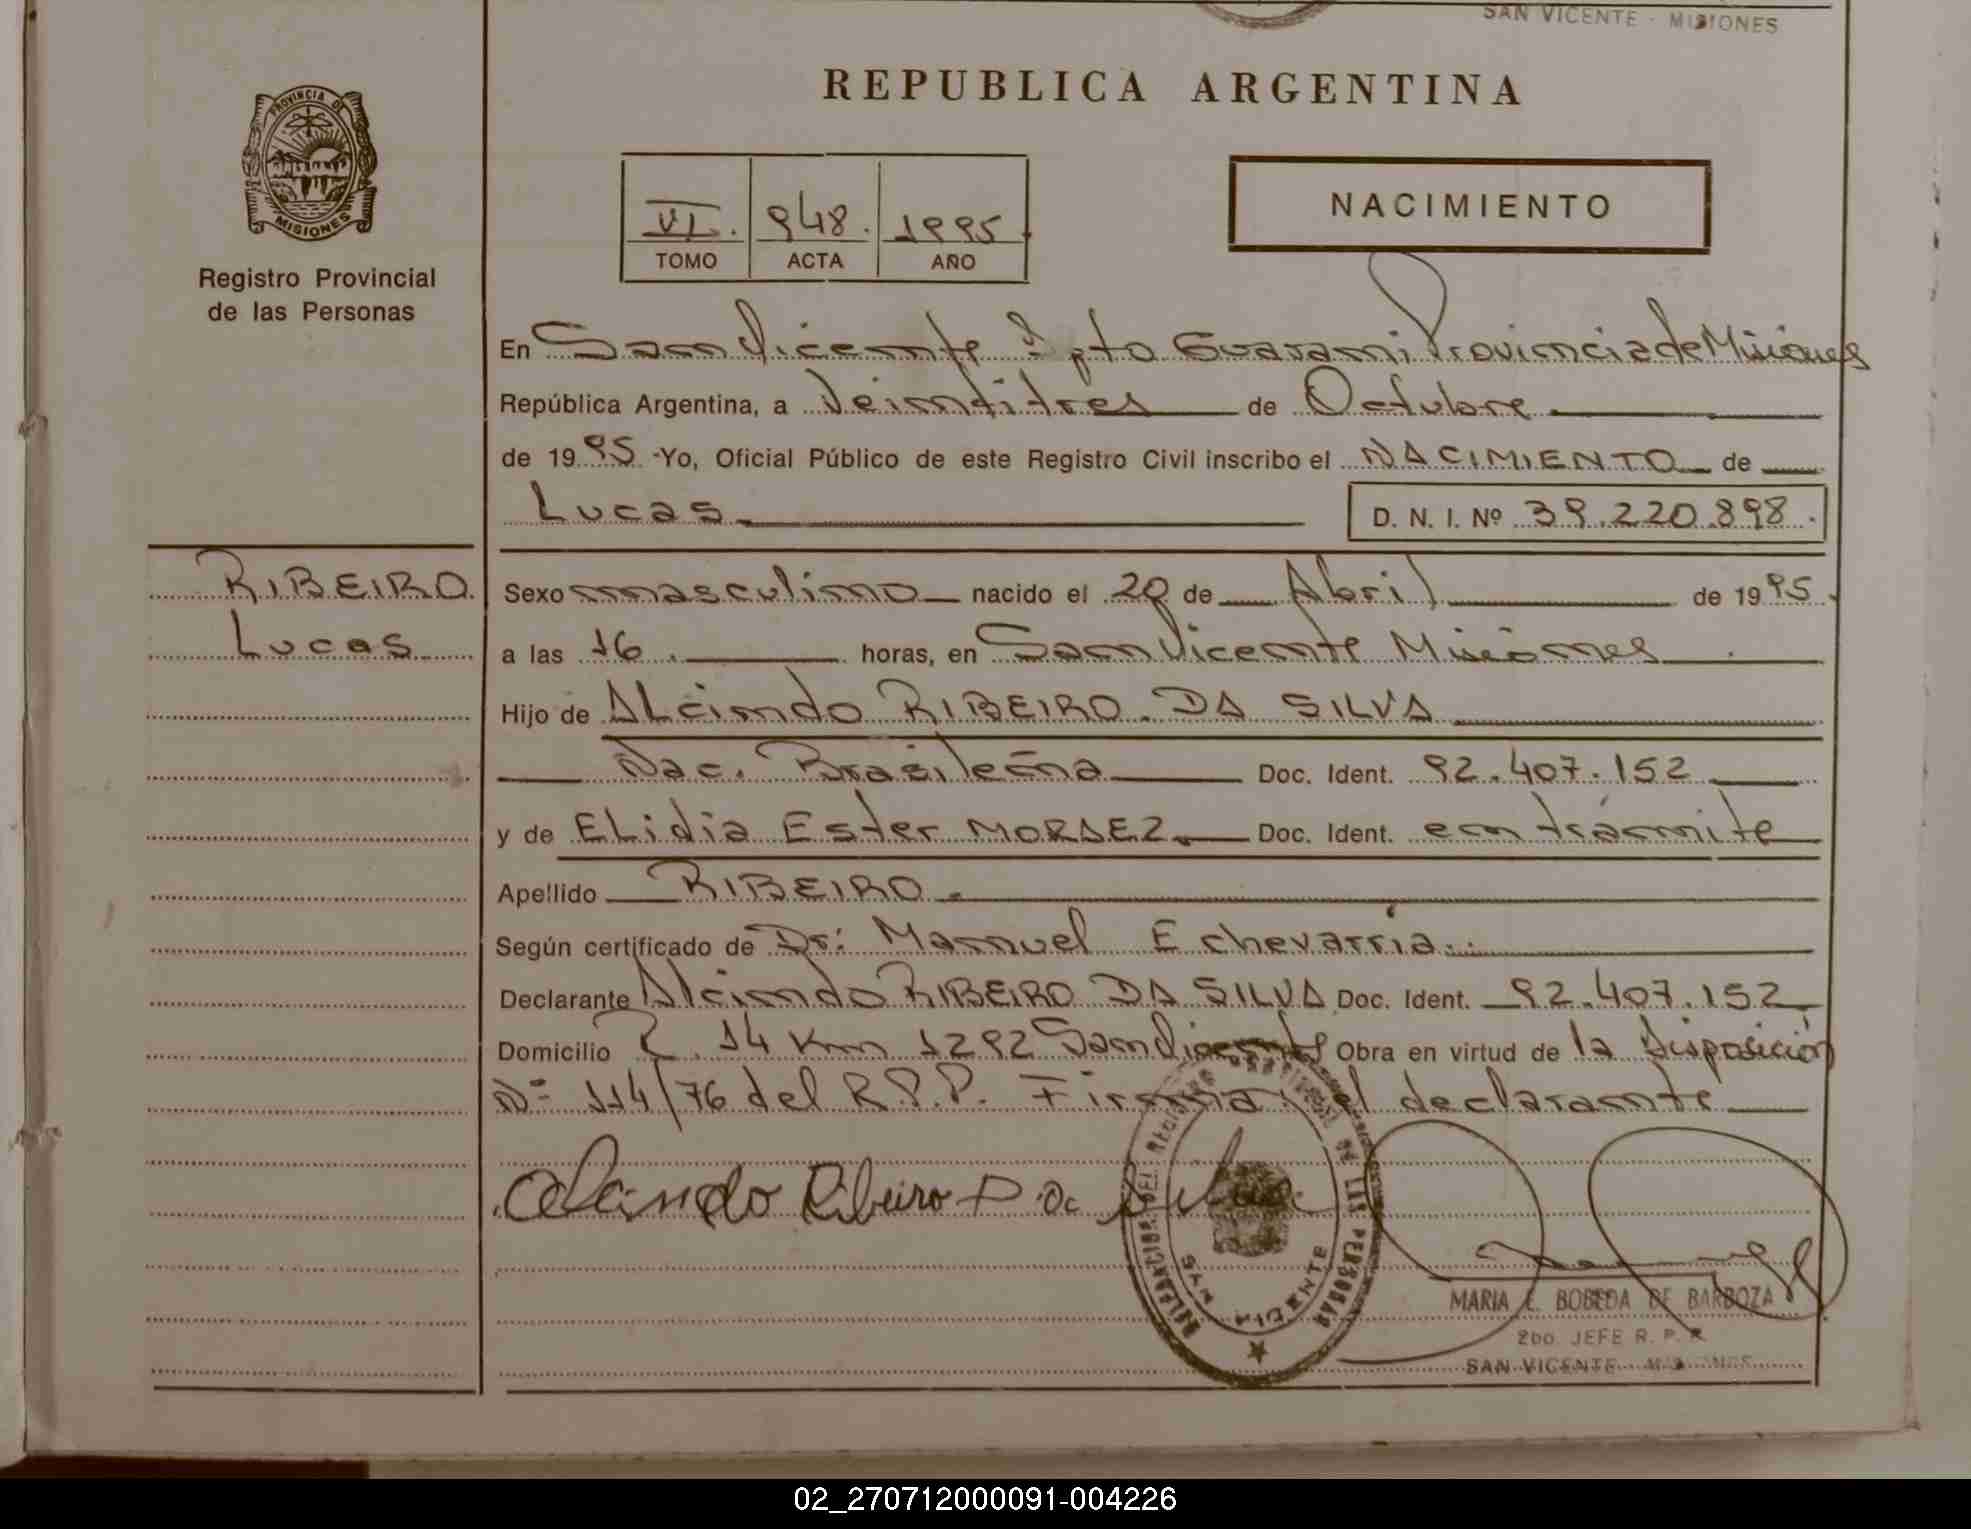 SAN VICENTE - MISIONES
REPUBLICA ARGENTINA
PROVINCIA DE
MISIONES
Registro Provincial
de las Personas
VI. 948. 1995
TOMO ACTA AÑO
NACIMIENTO
En San Vicente Dpto Guarani Provincia de Misiones
República Argentina, a Veintitres de Octubre
de 1995 - Yo, Oficial Público de este Registro Civil inscribo el NACIMIENTO de
Lucas D. N. I. Nº 39.220.898.
RIBEIRO
Lucas
Sexo masculino nacido el 20 de Abril de 1995
a las 16. horas, en San Vicente Misiones
Hijo de ALcindo RIBEIRO DA SILVA
Nac. Brasileña Doc. Ident. 92.407.152
y de ELidia Ester MORAEZ Doc. Ident. en trámite
Apellido RIBEIRO.
Según certificado de Dr: Manuel Echevarria
Declarante Alcindo RIBEIRO DA SILVA Doc. Ident. 92.407.152
Domicilio R. 14 Km 1292 San Vicente Obra en virtud de la disposición
Nº 114/76 del R.P.P. Firma el declarante
Alcindo Ribeiro Da Silva
DE LAS PERSONAS
SAN VICENTE
MARIA E. BOBEDA DE BARBOZA
2do. JEFE R. P. P.
SAN VICENTE - MISIONES
02_270712000091-004226